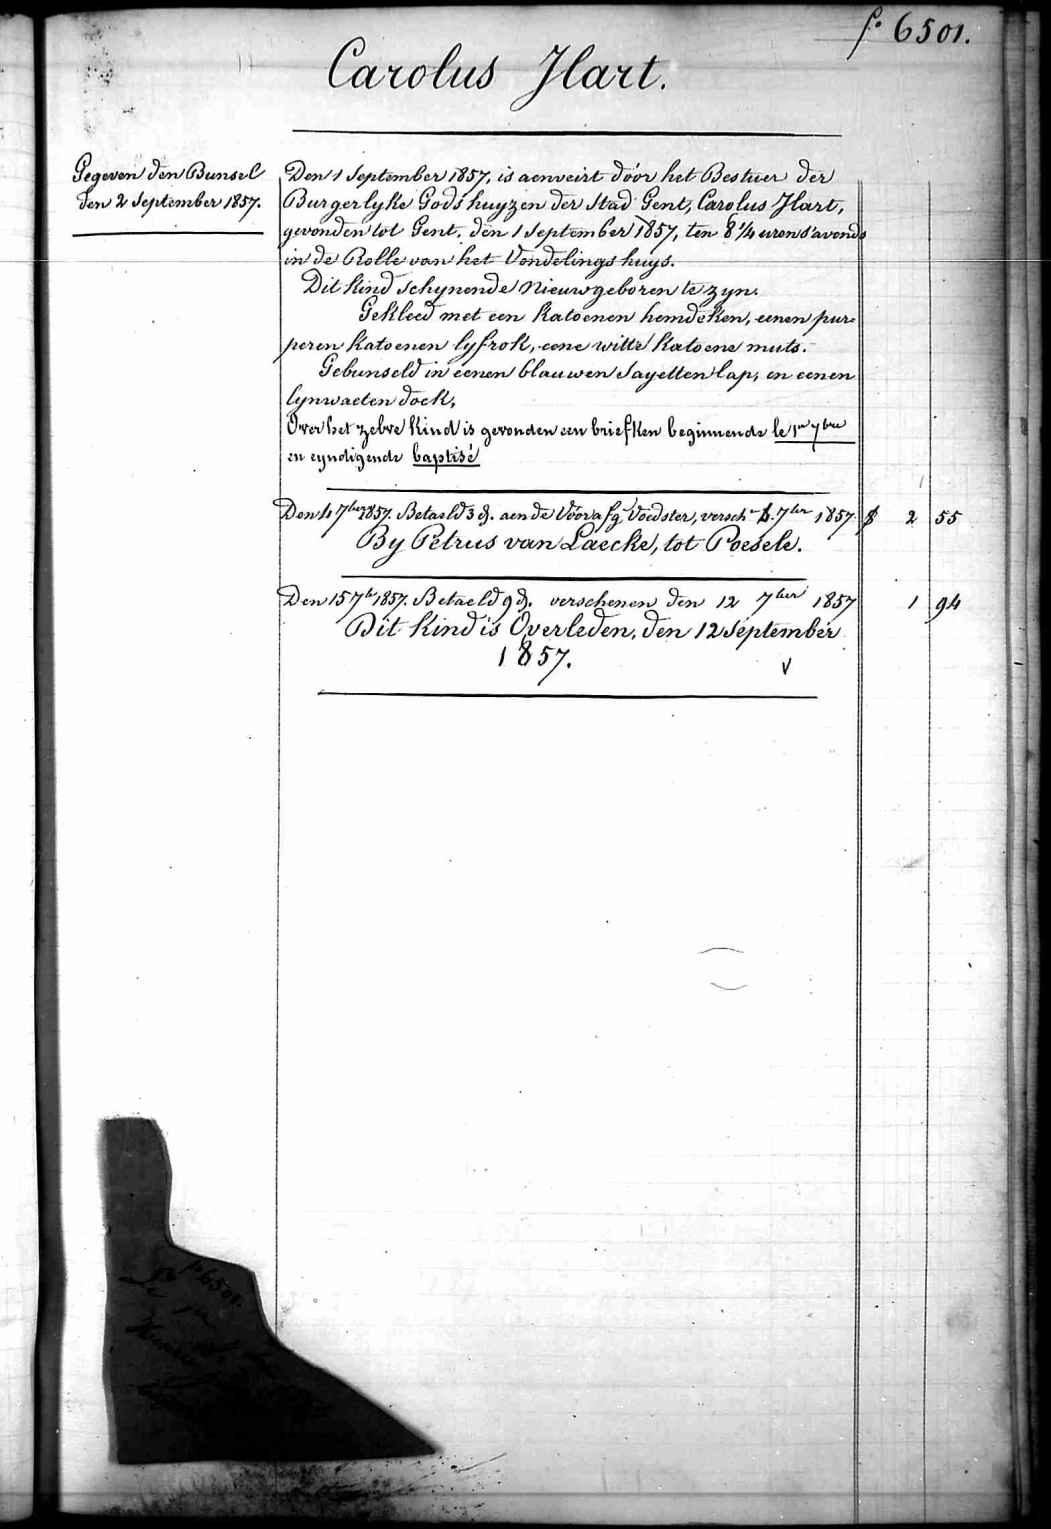 fo 6501.
Carolus Hart.
Gegeven den Bunsel
den 2 September 1857.
Den 1 September 1857, is aenveirt door het Bestuer der
Burgerlyke Godshuyzen der Stad Gent, Carolus Hart,
gevonden tot Gent, den 1 September 1857, ten 8 1/4 uren s'avonds
in de Rolle van het Vondelingshuys.
Dit kind schynende Nieuwgeboren te zyn.
Gekleed met een katoenen hemdeken, eenen pur-
peren katoenen lyfrok, eene witte katoene muts.
Gebunseld in eenen blauwen Sayetten lap, en eenen
lynwaeten doek,
Over het zelve kind is gevonden een briefken beginnende le 1er 7bre
en eyndigende baptisé
Den 4 7ber 1857. Betaeld 3 d. aen de Voorafg Voedster, versch 4. 7ber 1857. 2 55
By Petrus van Laecke, tot Poesele.
Den 15 7b 1857. Betaeld 9 d. verschenen den 12 7ber 1857 1 94
Dit kind is Overleden, den 12 September
1857.
fo 6501.
Le